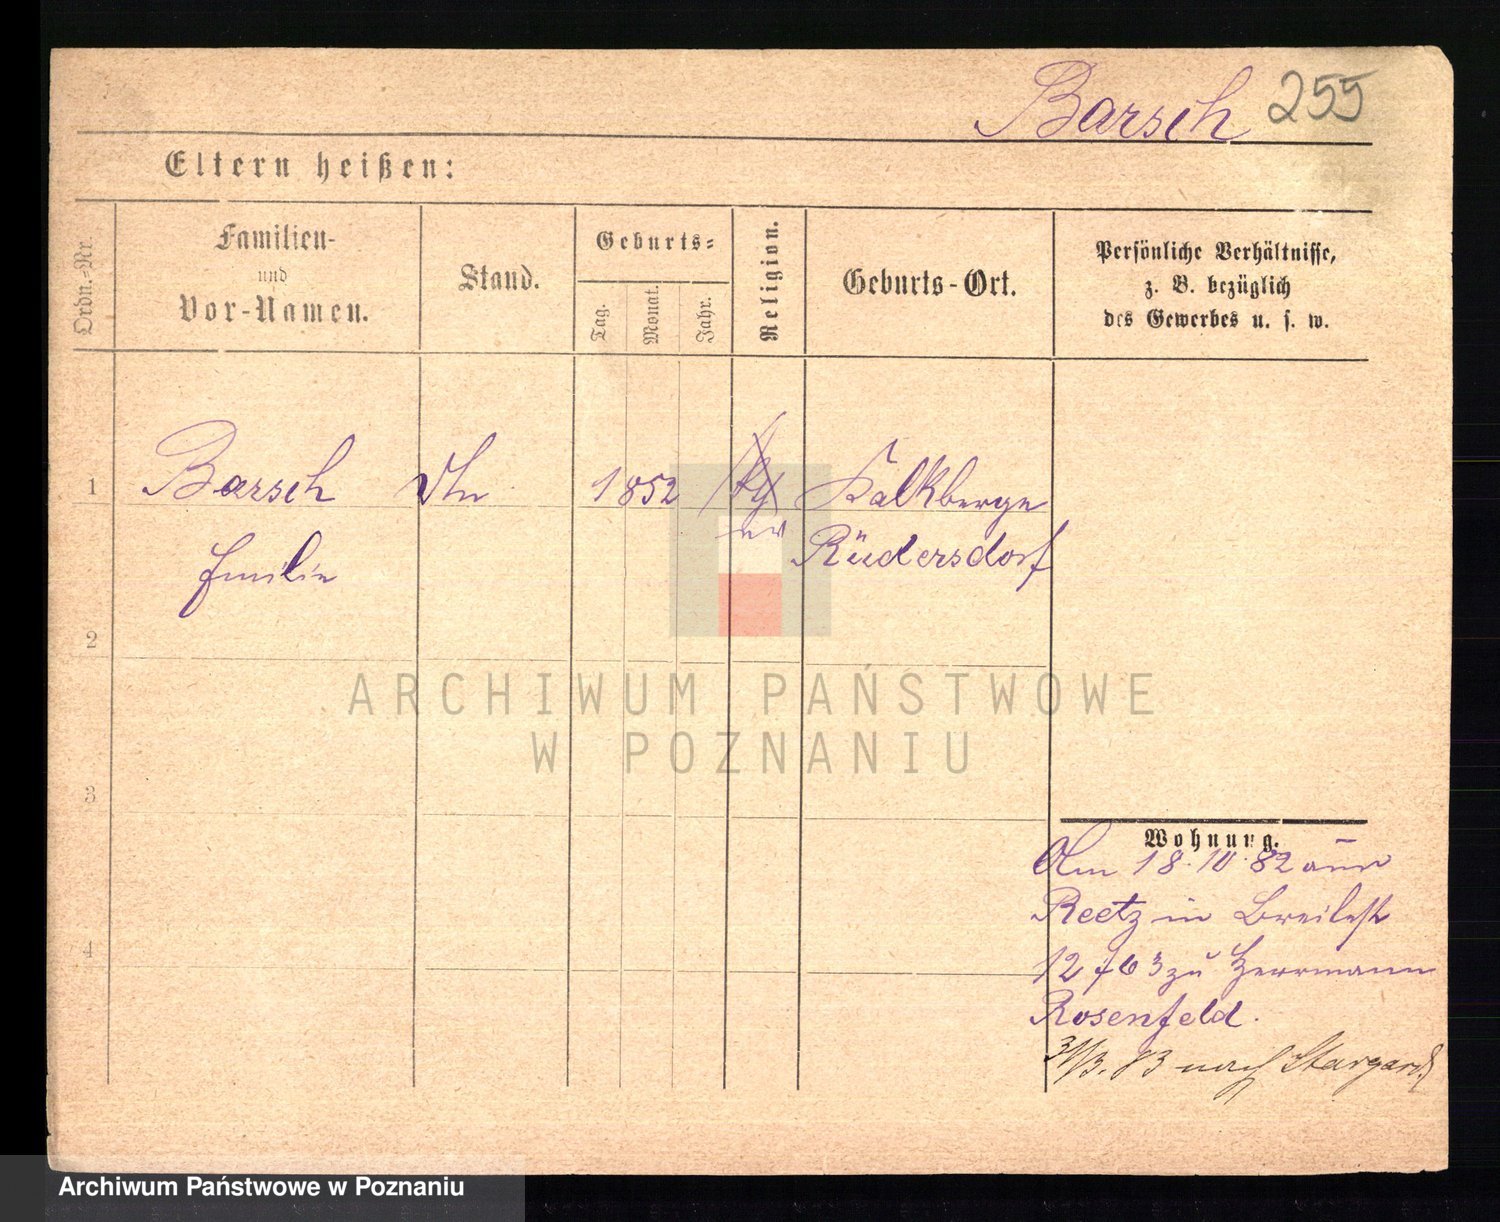 Barsch 255
Eltern heißen:
Ordn.-Nr.
Familien-
und
Vor-Namen.
Stand.
Geburts-
Tag.
Monat.
Jahr.
Religion.
Geburts-Ort.
Persönliche Verhältnisse,
z. B. bezüglich
des Gewerbes u. s. w.
1 Barsch 1852 Kalkberge
Emilie ev Rüdersdorf
2
3
4
Wohnung.
Am 18.10.82 aus
Reetz in Breitestr
12 bei Herrmann
Rosenfeld.
31/3. 83 nach Stargard
ARCHIWUM PAŃSTWOWE
W POZNANIU
Archiwum Państwowe w Poznaniu